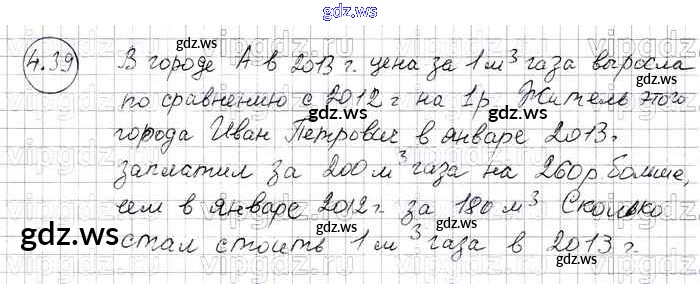 gdz.ws
4.39 В городе А в 2013 г. цена за 1 м³ газа выросла
по сравнению с 2012 г на 1 р. Житель этого
города Иван Петрович в январе 2013 г.
заплатил за 200 м³ газа на 260 р больше,
чем в январе 2012 г. за 180 м³ Сколько
стал стоить 1 м³ газа в 2013 г.
gdz.ws
gdz.ws